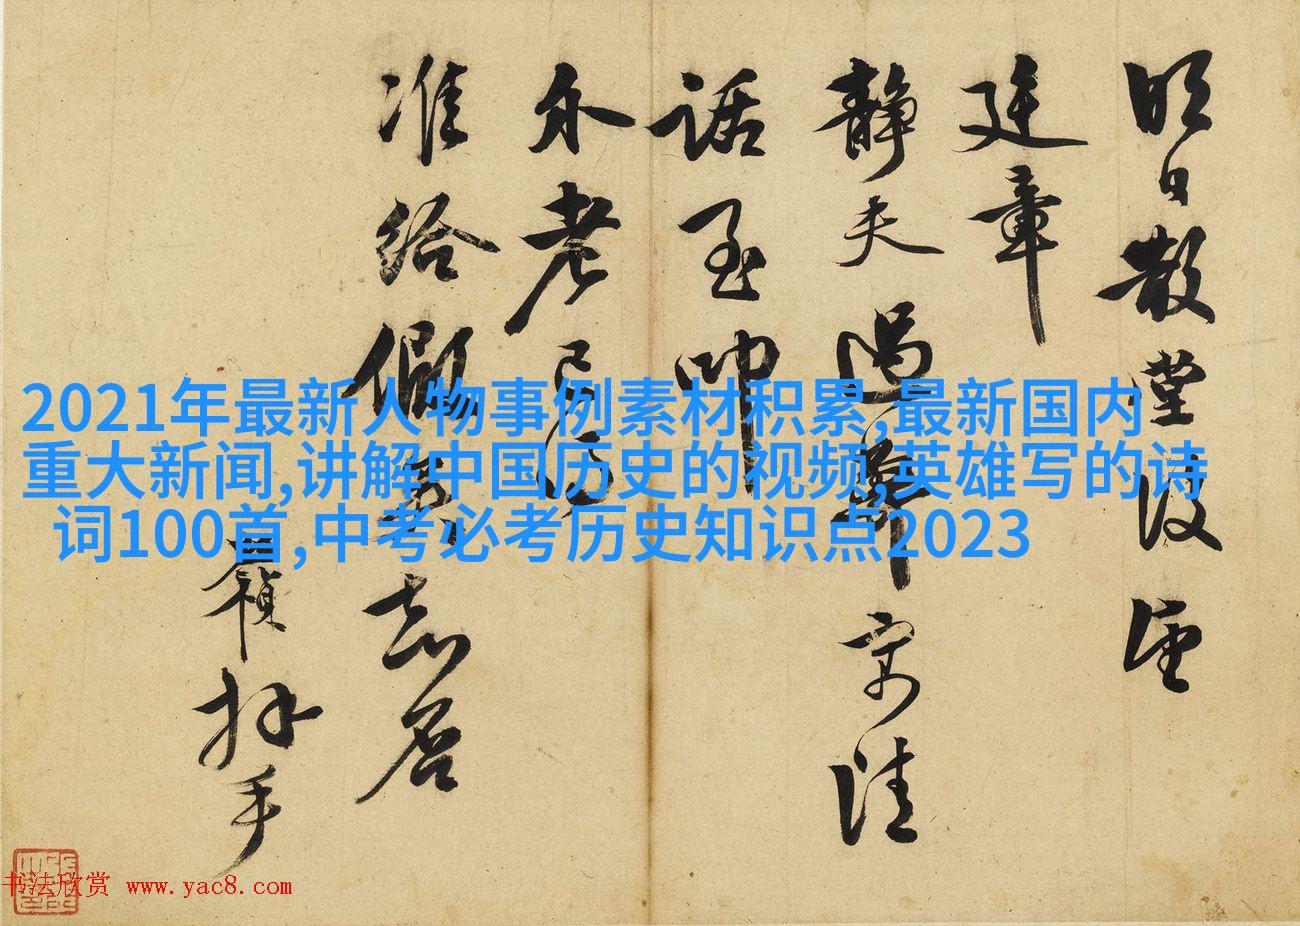 明日散堂後望
廷章
靜夫過弊寓清
話至叩
老
准給
應禎拜手
2021年最新人物事例素材积累,最新国内
重大新闻,讲解中国历史的视频,英雄写的诗
词100首,中考必考历史知识点2023
书法欣赏 www.yac8.com